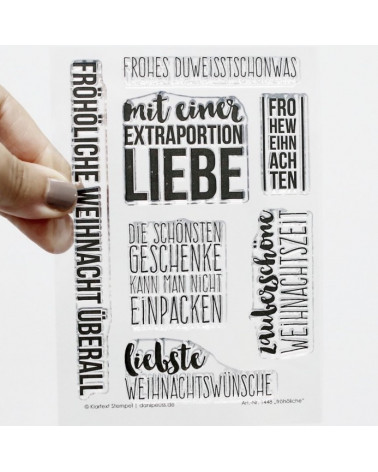 FROHES DUWEISSTSCHONWAS
FRÖHÖLICHE WEIHNACHT ÜBERALL
mit einer
EXTRAPORTION
LIEBE
FRO
HEW
EIHN
ACH
TEN
DIE SCHÖNSTEN
GESCHENKE
KANN MAN NICHT
EINPACKEN
zauberschöne
WEIHNACHTSZEIT
liebste
WEIHNACHTSWÜNSCHE
© Klartext Stempel | danipeuss.de
Art.-Nr. 1448 „fröhöliche"